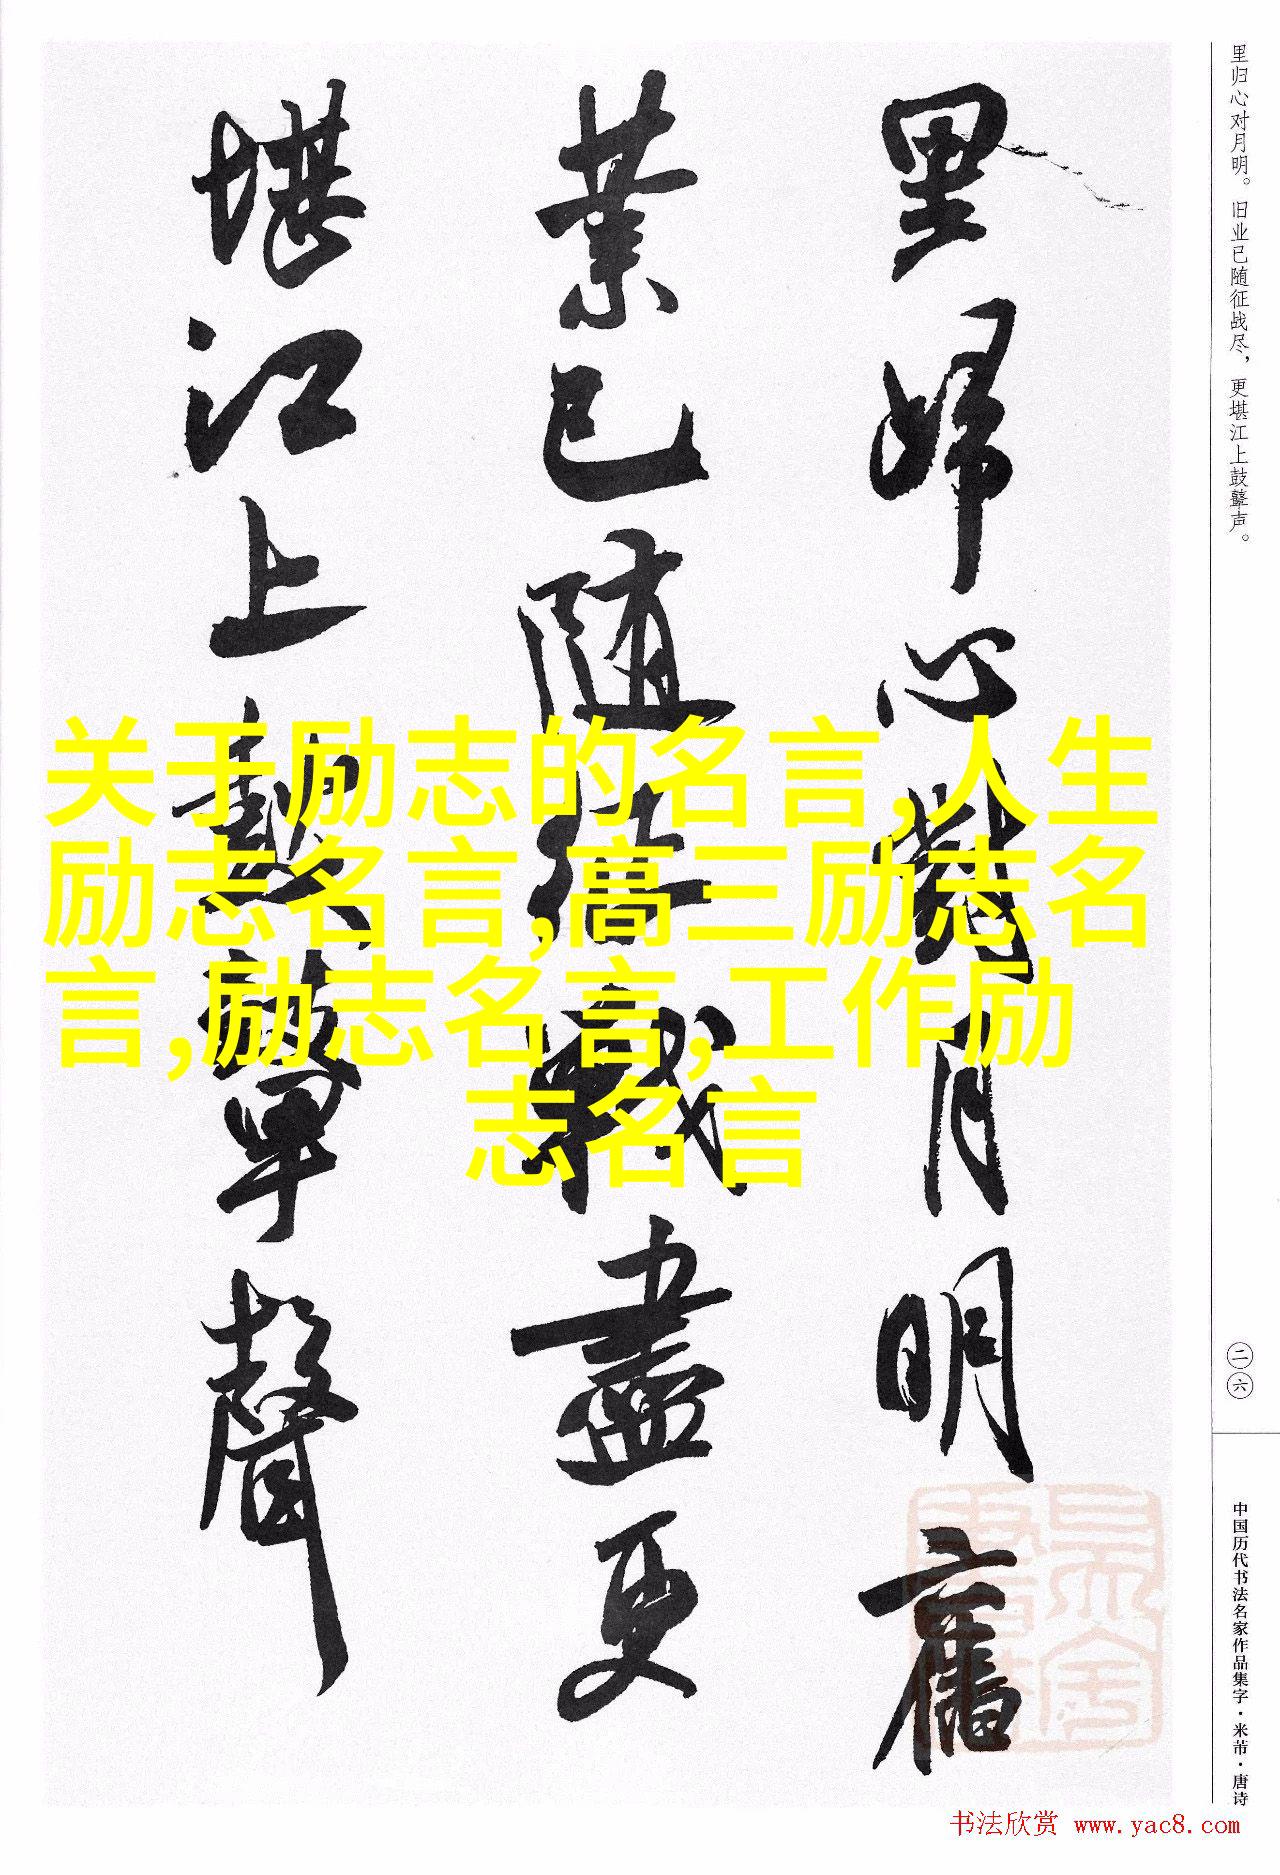 里归心对月明。旧业已随征战尽，更堪江上鼓鼙声。
里歸心對月明舊
業已隨征戰盡更
堪江上鼓鼙聲
关于励志的名言,人生
励志名言,高三励志名
言,励志名言,工作励
志名言
二六
中国历代书法名家作品集字·米芾·唐诗
书法欣赏 www.yac8.com